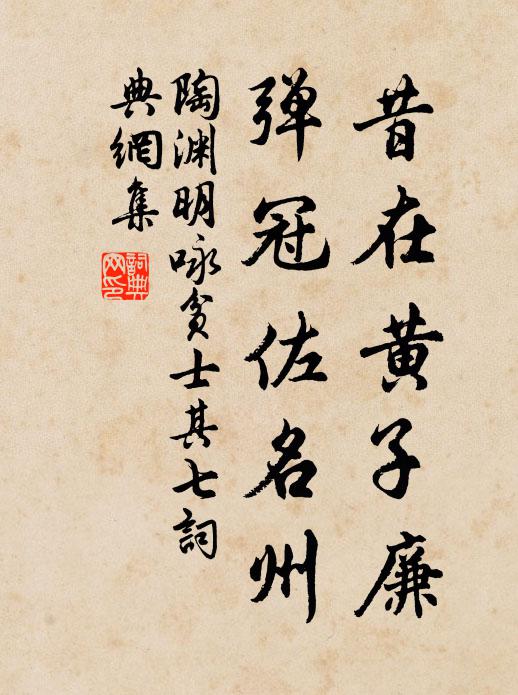 昔在黄子廉
弹冠佐名州
陶渊明咏贫士其七詞
典網集
詞典網印